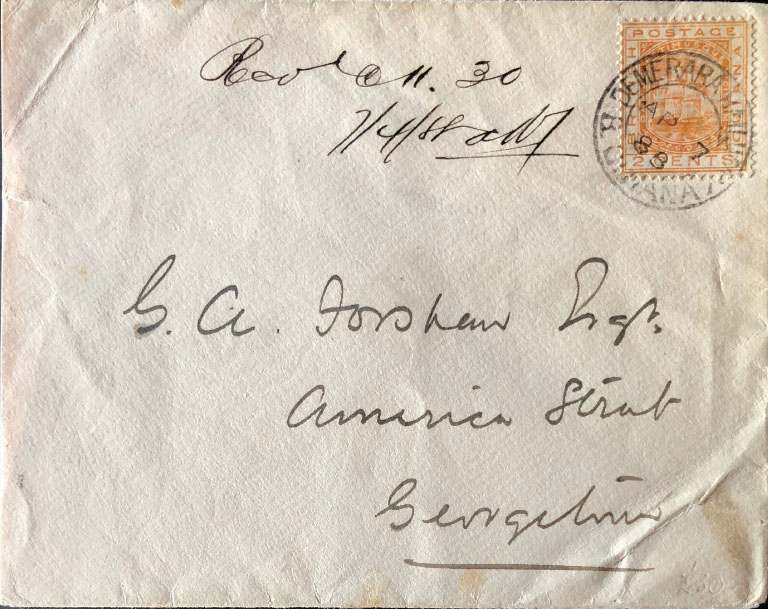 Recd @ 11. 30
POSTAGE
DEMERARA
AP 7
88
2 CENTS
G. A. Forshaw Esqr.
America Street
Georgetown